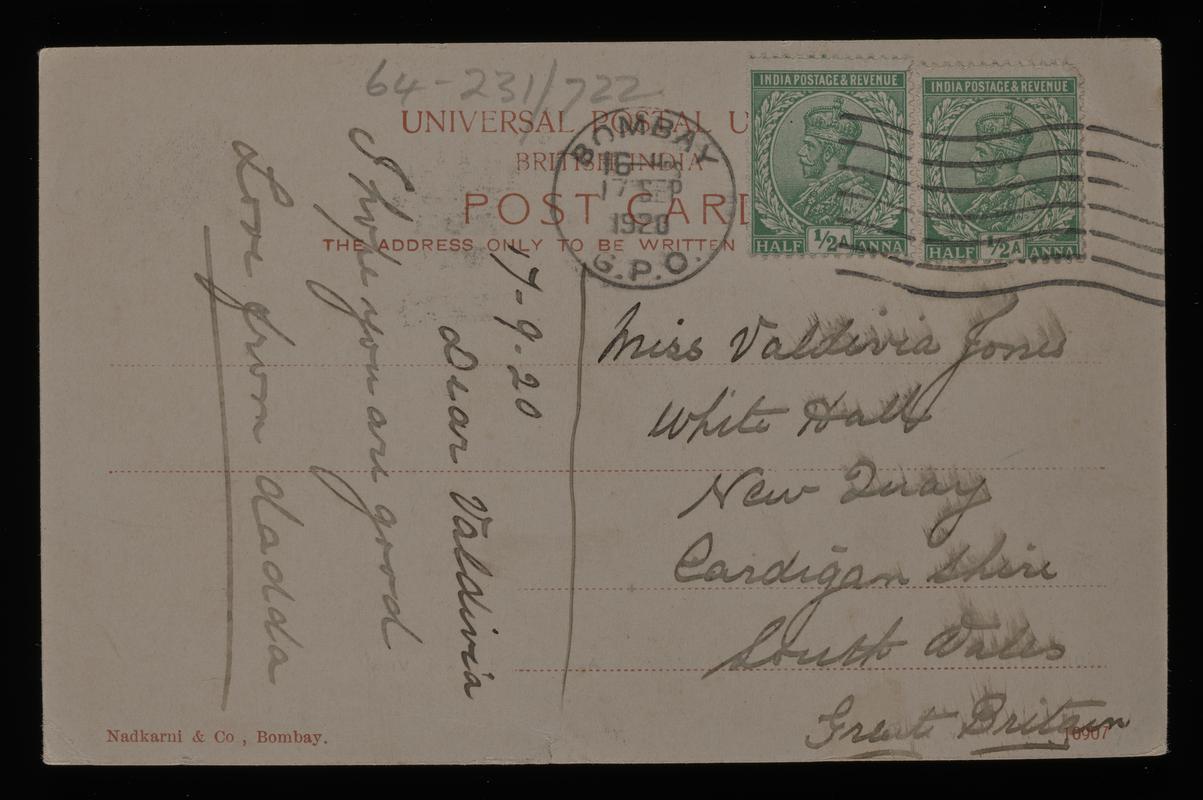 64-231/722
UNIVERSAL POSTAL U
BRITISH INDIA
POST CARD
THE ADDRESS ONLY TO BE WRITTEN
BOMBAY
17 SEP
1920
G.P.O.
INDIA POSTAGE & REVENUE
HALF 1/2A ANNA
INDIA POSTAGE & REVENUE
HALF 1/2A ANNA
17-9.20
Dear Valdivia
I hope you are good
Love from dadda
Miss Valdivia Jones
White Hall
New Quay
Cardigan Shire
South Wales
Great Britain
Nadkarni & Co , Bombay.
10907